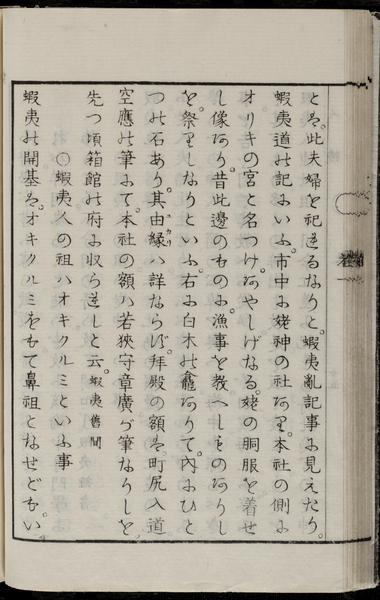 とそ此夫婦を祀まるなりと蝦夷亂記事に見えたり。
蝦夷道の記にいふ。市中に姥神の社あり。本社の側に
オリキの宮と名つけ。あやしげなる。姥の胴服を着せ
し像あり。昔此邊のものに漁事を教へしものありし
を祭りしなりといふ。右に白木の龕ありて。內にひと
つの石あり。其由縁ハ詳ならす。拜殿の額を。町尻入道
空應の筆にて。本社の額ハ若狹守章廣が筆なりしを。
先つ頃箱館の府に收らましと云。蝦夷舊聞
○蝦夷人の祖ハオキクルミといふ事
蝦夷の開基を。オキクルミをもて鼻祖となせども。い